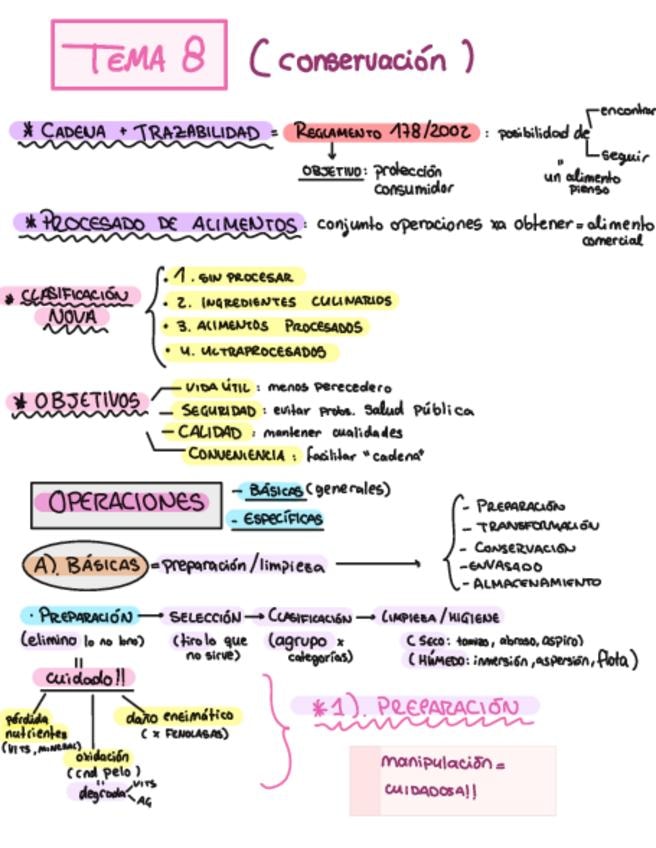 TEMA 8 (conservación)
* CADENA + TRAZABILIDAD = REGLAMENTO 178/2002 : posibilidad de encontrar
seguir
un alimento
pienso
OBJETIVO: protección
consumidor
* PROCESADO DE ALIMENTOS: conjunto operaciones xa obtener = alimento
comercial
* CLASIFICACIÓN
NOVA
• 1. SIN PROCESAR
• 2. INGREDIENTES CULINARIOS
• 3. ALIMENTOS PROCESADOS
• 4. ULTRAPROCESADOS
* OBJETIVOS
VIDA ÚTIL : menos perecedero
SEGURIDAD : evitar probs. salud pública
CALIDAD : mantener cualidades
CONVENIENCIA : facilitar "cadena"
OPERACIONES
- BÁSICAS (generales)
- ESPECÍFICAS
A). BÁSICAS = preparación/limpieza →
- PREPARACIÓN
- TRANSFORMACIÓN
- CONSERVACIÓN
- ENVASADO
- ALMACENAMIENTO
· PREPARACIÓN → SELECCIÓN → CLASIFICACIÓN → LIMPIEZA/HIGIENE
(elimino lo no bno)
(tiro lo que
no sirve)
(agrupo x
categorías)
(SECO: tamizo, abraso, aspiro)
(HÚMEDO: inmersión, aspersión, flota)
cuidado!!
pérdida
nutrientes
(VITS, MINERAL)
oxidación
(cnd pelo)
degrada
VITS
AG
daño enzimático
(x FENOLASAS)
* 1). PREPARACIÓN
manipulación =
CUIDADOSA!!